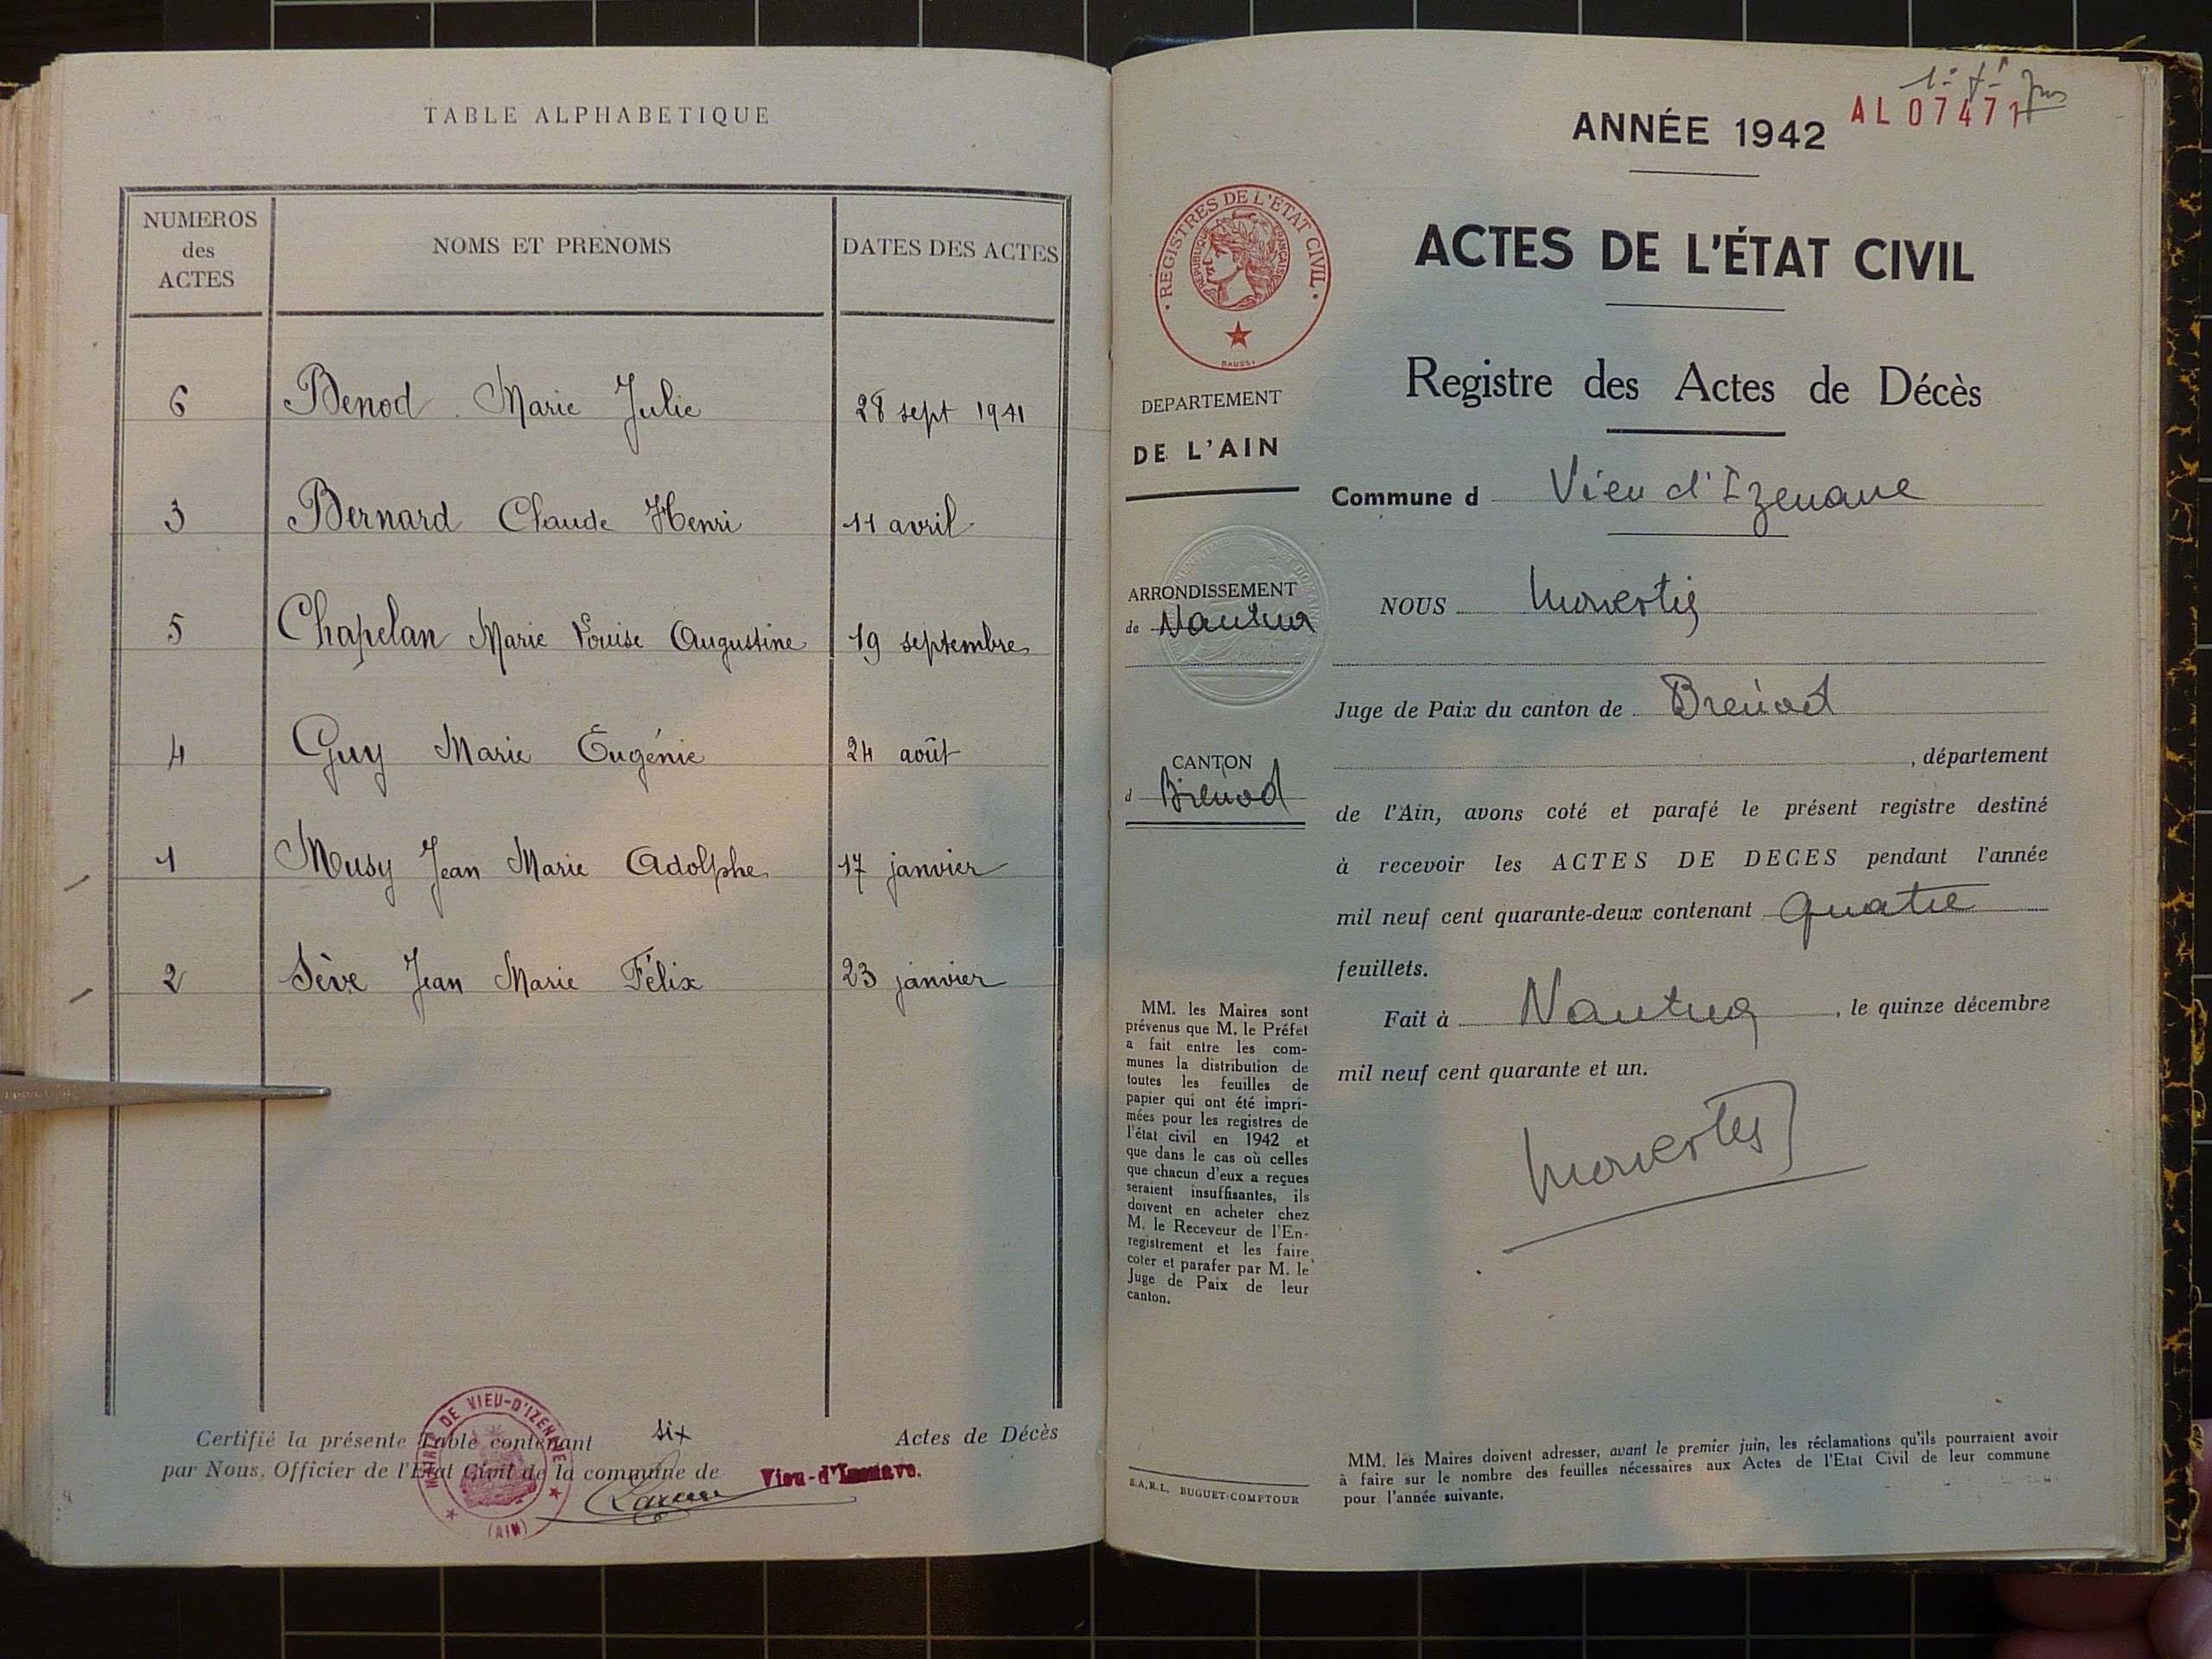 TABLE ALPHABETIQUE
NUMEROS des ACTES
NOMS ET PRENOMS
DATES DES ACTES
6 Benod Marie Julie 28 sept 1941
3 Bernard Claude Henri 11 avril
5 Chapelan Marie Louise Augustine 19 septembre
4 Guy Marie Eugénie 24 août
1 Musy Jean Marie Adolphe 17 janvier
2 Sève Jean Marie Félix 23 janvier
Certifié la présente Table contenant six Actes de Décès
par Nous, Officier de l'Etat Civil de la commune de Vieu-d'Izenave.
MAIRIE DE VIEU-D'IZENAVE
(AIN)
AL 07471
ANNÉE 1942
REGISTRES DE L'ETAT CIVIL
REPUBLIQUE FRANÇAISE
ACTES DE L'ÉTAT CIVIL
Registre des Actes de Décès
DEPARTEMENT
DE L'AIN
Commune d Vieu d'Izenave
ARRONDISSEMENT
de Nantua
NOUS
Juge de Paix du canton de Brénod
, département
CANTON
d Brénod
de l'Ain, avons coté et parafé le présent registre destiné
à recevoir les ACTES DE DECES pendant l'année
mil neuf cent quarante-deux contenant quatre
feuillets.
Fait à Nantua, le quinze décembre
mil neuf cent quarante et un.
MM. les Maires sont
prévenus que M. le Préfet
a fait entre les com-
munes la distribution de
toutes les feuilles de
papier qui ont été impri-
mées pour les registres de
l'état civil en 1942 et
que dans le cas où celles
que chacun d'eux a reçues
seraient insuffisantes, ils
doivent en acheter chez
M. le Receveur de l'En-
registrement et les faire
coter et parafer par M. le
Juge de Paix de leur
canton.
S.A.R.L. BUGUET-COMPTOUR
MM. les Maires doivent adresser, avant le premier juin, les réclamations qu'ils pourraient avoir
à faire sur le nombre des feuilles nécessaires aux Actes de l'Etat Civil de leur commune
pour l'année suivante.